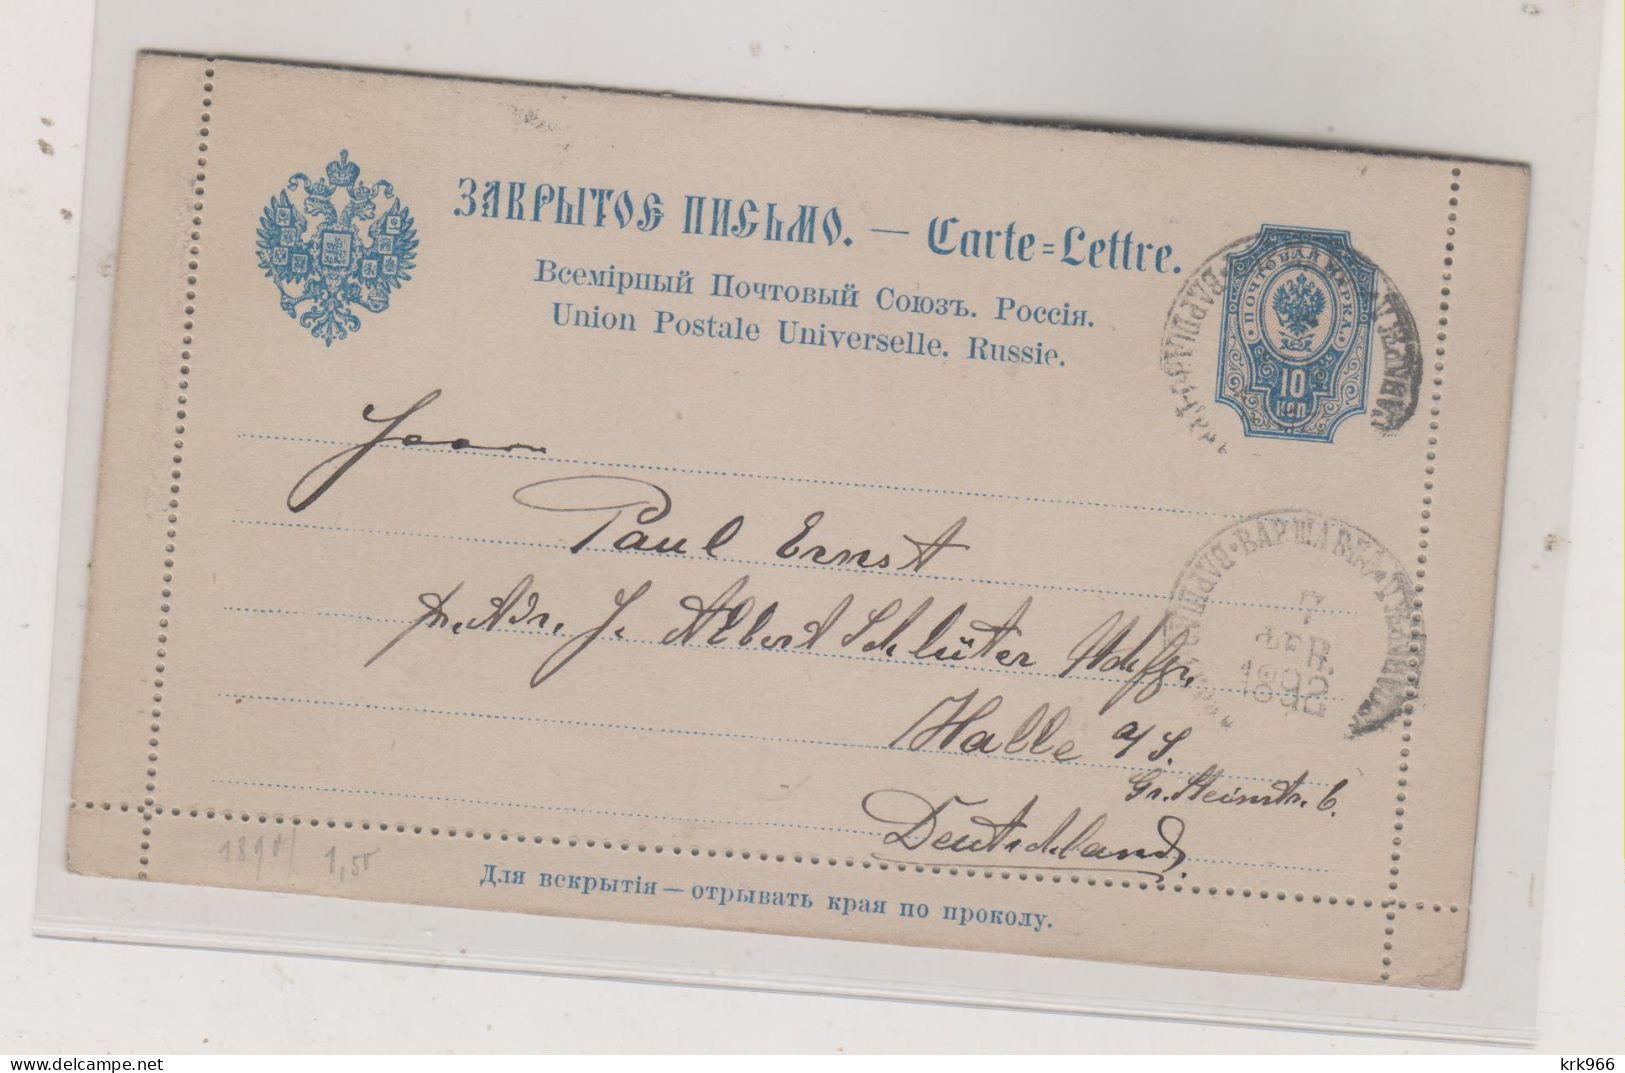 ЗАКРЫТОЕ ПИСЬМО. — Carte=Lettre.
Всемірный Почтовый Союзъ. Россія.
Union Postale Universelle. Russie.
ПОЧТОВАЯ МАРКА
10
КОП.
Herrn
Paul Ernst
pr. Adr. J. Albert Schlüter Nchfgr.
Halle a/S.
Gr. Steinstr. 6.
Deutschland
ВАРШАВА
7
ФЕВ.
1892
1,50
Для вскрытія — отрывать края по проколу.
krk966